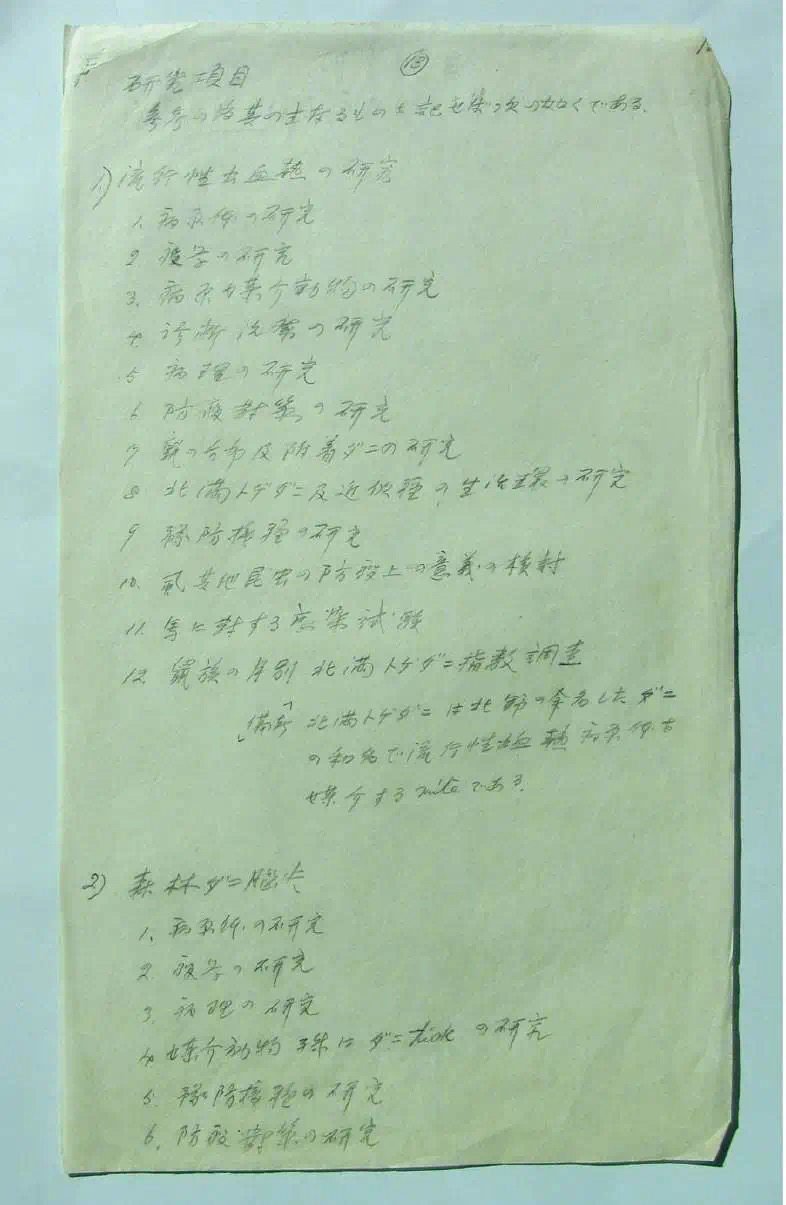 13
研究項目
参考の為其の主なるものを記せば次の如くである.
1) 流行性出血熱の研究
1. 病原体の研究
2 疫学の研究
3. 病原媒介動物の研究
4. 診断治療の研究
5. 病理の研究
6 防疫対策の研究
7 鼠の分布及附着ダニの研究
8 北満トゲダニ及近似種の生活環の研究
9 予防接種の研究
10. 昆虫の防疫上の意義の検討
11. 馬に対する感染試験
12. 鼠族の月別北満トゲダニ指数調査
「備考」 北満トゲダニは北野の命名したダニ
の和名で流行性出血熱病原体を
媒介するmiteである.
2) 森林ダニ脳炎
1. 病原体の研究
2. 疫学の研究
3. 病理の研究
4 媒介動物 殊にダニtickの研究
5. 予防接種の研究
6. 防疫対策の研究